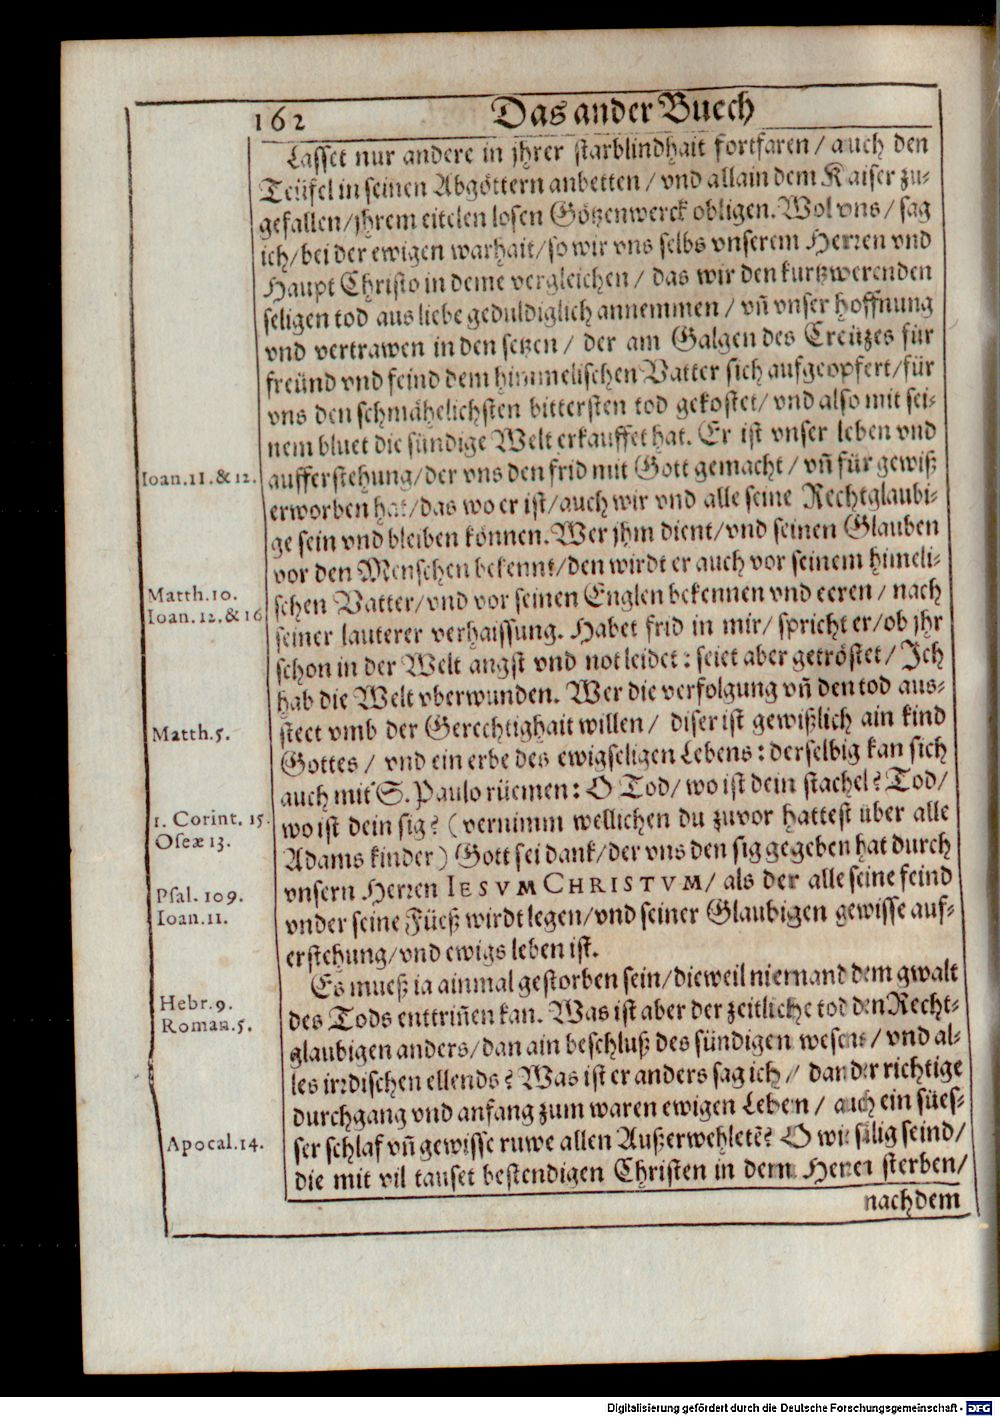 162 Das ander Buech
Lasset nur andere in jhrer starblindhait fortfaren / auch den
Teüfel in seinen Abgöttern anbetten / vnd allain dem Kaiser zu-
gefallen / jhrem eitelen losen Götzenwerck obligen. Wol vns / sag
ich / bei der ewigen warhait / so wir vns selbs vnserem Herren vnd
Haupt Christo in deme vergleichen / das wir den kurtzwerenden
seligen tod aus liebe geduldiglich annemmen / vñ vnser hoffnung
vnd vertrawen in den setzen / der am Galgen des Creützes für
freünd vnd feind dem himmelischen Vatter sich aufgeopfert / für
vns den schmähelichsten bittersten tod gekostet / vnd also mit sei-
nem bluet die sündige Welt erkauffet hat. Er ist vnser leben vnd
Ioan.11.&12.
aufferstehung / der vns den frid mit Gott gemacht / vñ für gewiß
erworben hat / das wo er ist / auch wir vnd alle seine Rechtglaubi-
ge sein vnd bleiben können. Wer jhm dient / vnd seinen Glauben
vor den Menschen bekennt / den wirdt er auch vor seinem himeli-
Matth.10.
schen Vatter / vnd vor seinen Englen bekennen vnd eeren / nach
Ioan.12.&16
seiner lauterer verhaissung. Habet frid in mir / spricht er / ob jhr
schon in der Welt angst vnd not leidet : seiet aber getröstet / Ich
hab die Welt vberwunden. Wer die verfolgung vñ den tod aus-
Matth.5.
steet vmb der Gerechtighait willen / diser ist gewißlich ain kind
Gottes / vnd ein erbe des ewigseligen Lebens : derselbig kan sich
auch mit S. Paulo rüemen : O Tod / wo ist dein stachel? Tod /
1. Corint. 15.
wo ist dein sig? (vernimm wellichen du zuvor hattest über alle
Oseæ 13.
Adams kinder) Gott sei dank / der vns den sig gegeben hat durch
Psal. 109.
vnsern Herren IESVM CHRISTVM / als der alle seine feind
Ioan.11.
vnder seine Füeß wirdt legen / vnd seiner Glaubigen gewisse auf-
erstehung / vnd ewigs leben ist.
Es mueß ia ainmal gestorben sein / dieweil niemand dem gwalt
Hebr.9.
des Tods enttriñen kan. Was ist aber der zeitliche tod den Recht-
Roman.5.
glaubigen anders / dan ain beschluß des sündigen wesens / vnd al-
les irrdischen ellends? Was ist er anders sag ich / dan der richtige
durchgang vnd anfang zum waren ewigen Leben / auch ein sües-
Apocal.14.
ser schlaf vñ gewisse ruwe allen Außerwehletẽ? O wie sälig seind /
die mit vil tauset bestendigen Christen in dem Herren sterben /
nachdem
Digitalisierung gefördert durch die Deutsche Forschungsgemeinschaft - DFG